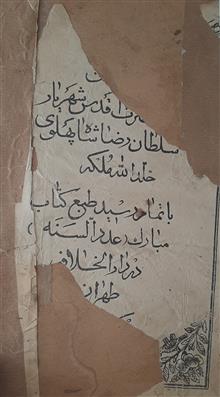 اقدس شهریار
سلطان رضا شاه پهلوی
خلدالله ملکه
باتمام رسید طبع کتاب
مبارک عدد السنه
در دارالخلافه
طهران